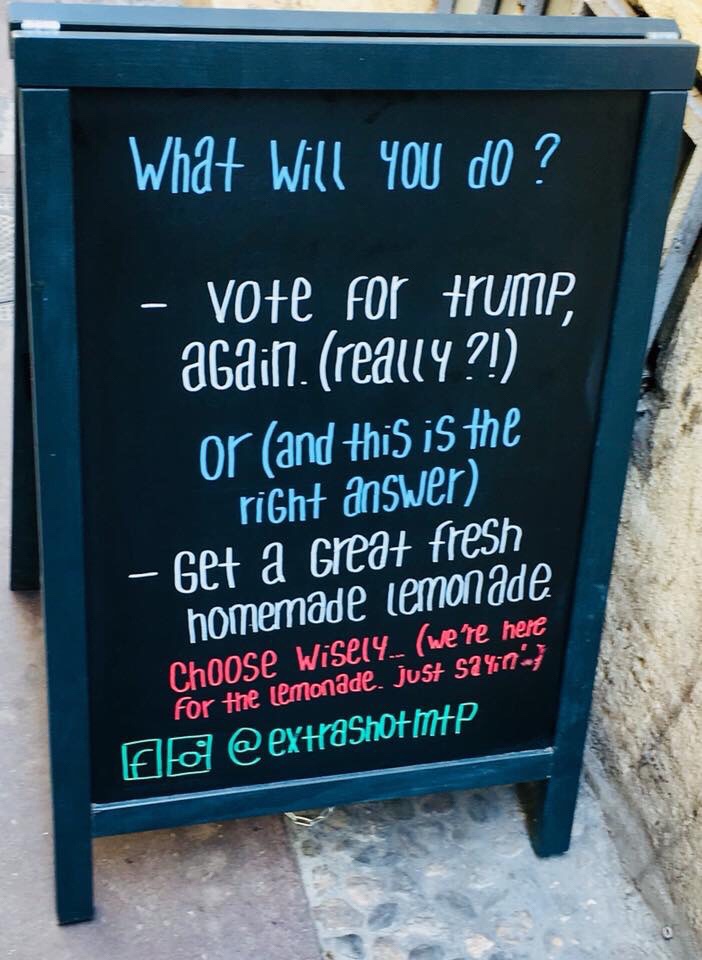 What Will you do ?
- Vote for trump,
again. (really ?!)
or (and this is the
right answer)
- Get a Great fresh
homemade lemonade.
Choose Wisely... (we're here
for the lemonade. just sayin'..)
@extrashotmtp